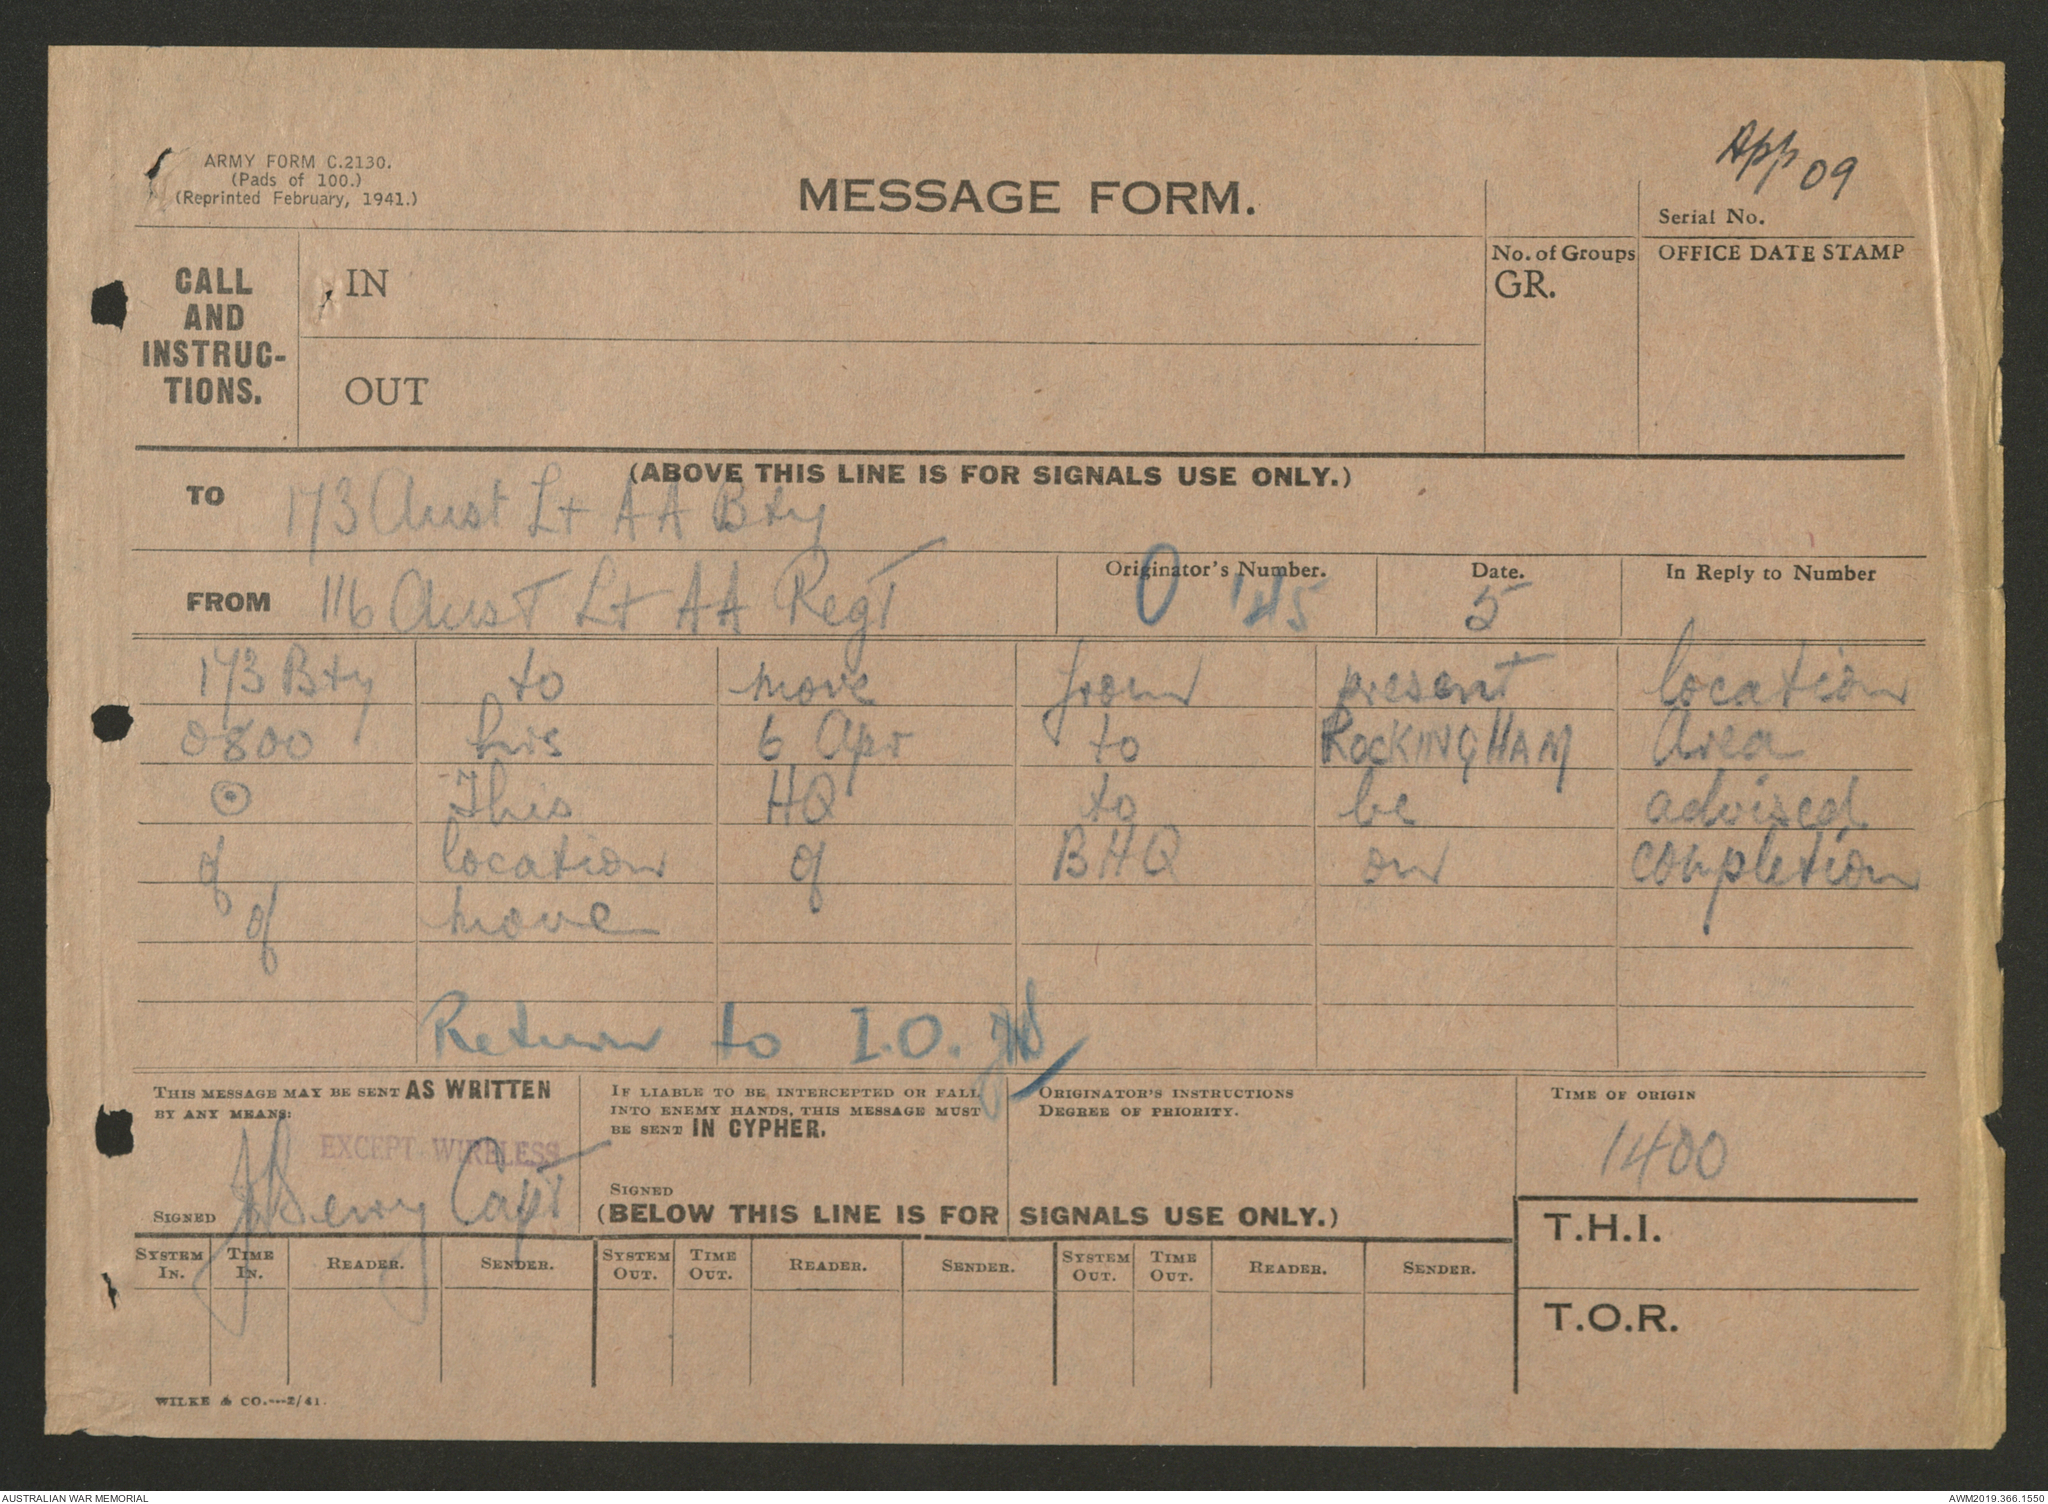 ARMY FORM C.2130.
(Pads of 100.)
(Reprinted February, 1941.)
MESSAGE FORM.
App 09
Serial No.
CALL AND INSTRUC-TIONS.
IN
OUT
No. of Groups
GR.
OFFICE DATE STAMP
(ABOVE THIS LINE IS FOR SIGNALS USE ONLY.)
TO 173 Aust Lt AA Bty
FROM 116 Aust Lt AA Regt
Originator's Number. O 145
Date. 5
In Reply to Number
173 Bty to move from present location
0800 hrs 6 Apr to ROCKINGHAM Area
⊙ This HQ to be advised
of location of BHQ on completion
of move
Return to I.O.
THIS MESSAGE MAY BE SENT AS WRITTEN
BY ANY MEANS:
EXCEPT WIRELESS
SIGNED Capt
IF LIABLE TO BE INTERCEPTED OR FALL
INTO ENEMY HANDS, THIS MESSAGE MUST
BE SENT IN CYPHER.
SIGNED
ORIGINATOR'S INSTRUCTIONS
DEGREE OF PRIORITY.
TIME OF ORIGIN
1400
(BELOW THIS LINE IS FOR SIGNALS USE ONLY.)
T.H.I.
SYSTEM IN. TIME IN. READER. SENDER. SYSTEM OUT. TIME OUT. READER. SENDER. SYSTEM OUT. TIME OUT. READER. SENDER.
T.O.R.
WILKE & CO.---2/41.
AUSTRALIAN WAR MEMORIAL
AWM2019.366.1550